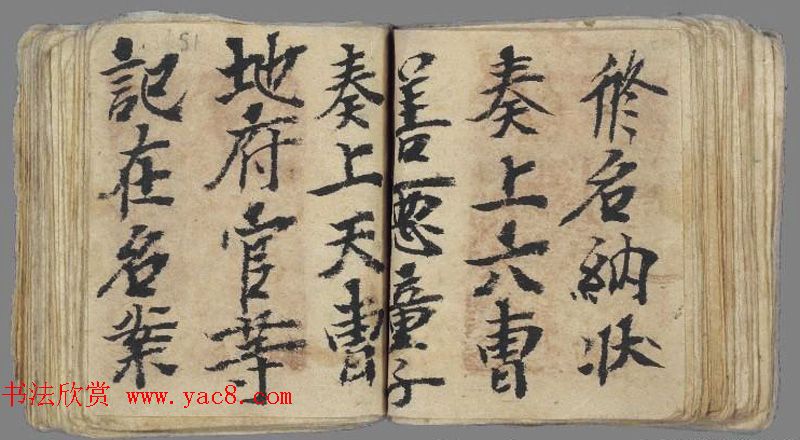 修名納状
奏上六曹
善惡童子
奏上天曹
地府官等
記在名案
书法欣赏 www.yac8.com